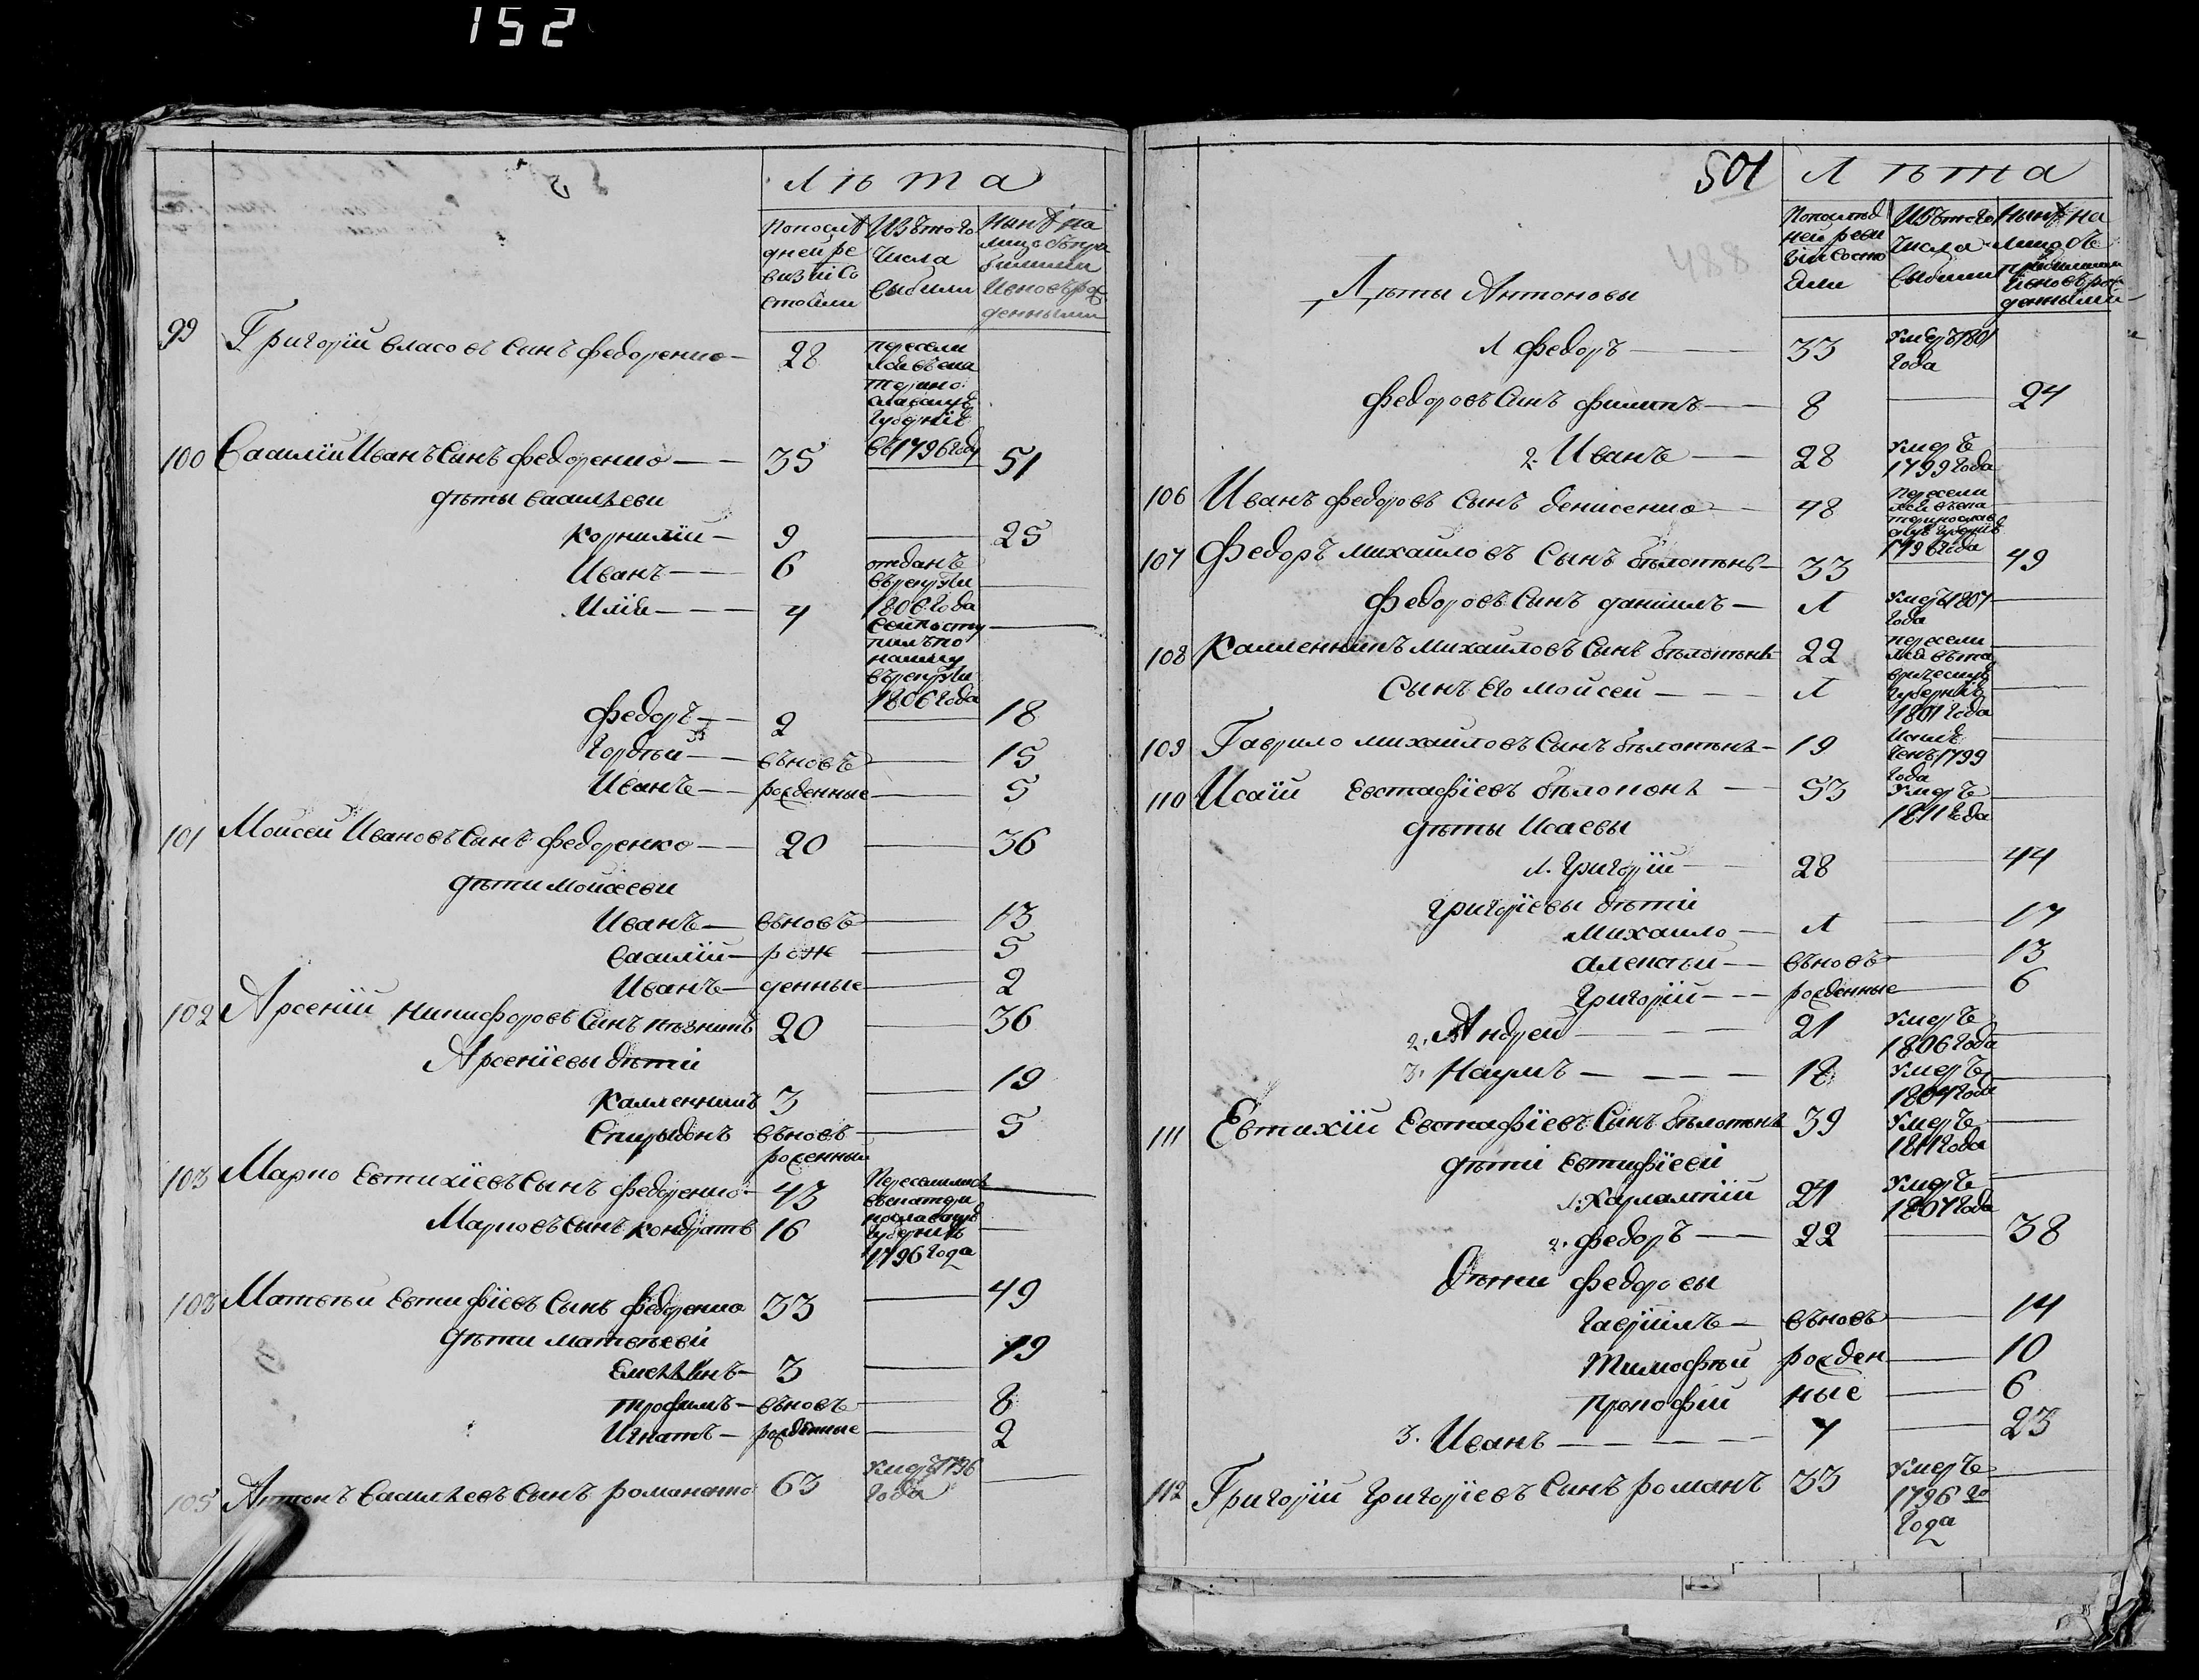 152
Лѣта
Попослѣ Изътого Нынѣ на
дней ре числа лицо съпри
визіи со выбыли былыми
стояли Ивновьрож
денными
99 Григорій власовъ сынъ федоренко 28 пересели
лся въека
терино
славскую
Губернію
въ 1796 году
100 Василій Иванъ Сынъ федоренко 35 51
дѣты васильеви
Корнилій 9 25
Иванъ 6 отданъ
въ рекруты
1806 года
Илія 4 сей посту
пилъ по
найму
въ рекруты
1806 года
федоръ 2 18
Гордѣи вьновь 15
Иванъ рожденные 5
101 Моисей Ивановъ Сынъ федоренко 20 36
дѣти моисееви
Иванъ вьновь 13
василій рож 5
Иванъ денные 2
102 Арсеній Никифоровъ Сынъ 20 36
Арсеніевы дѣти
Калленникъ 3 19
Спирыдонъ вьновь 5
роженный
103 Марко Евтихіевъ Сынъ федоренко 43 Переселились
въекатери
нославскую
Губернію
1796 года
Марковъ Сынъ Кондратъ 16
103 Матвѣи Евтифіевъ Сынъ федоренко 33 49
дѣти матвѣеви
Емельянъ 3 19
трофимъ вьновь 8
Игнатъ рожденные 2
105 Антонъ Васильевъ Сынъ романенко 63 умеръ 1796
года
501
488
Лѣта
Попослѣд Изътого Нынѣ на
ней реви числа лицо съ
зіи состо выбыли прибылыми
яли Ивновьрож
денными
Дѣты Антоновы
1 федоръ 33 умеръ 1801
года
федоровъ Сынъ филипъ 8 24
2. Иванъ 28 умеръ
1799 года
106 Иванъ федоровъ сынъ денисенко 48 пересели
лся въека
теринослав
скую Губернію
1796 года
107 Федоръ михайловъ Сынъ бѣлоконь 33 49
федоровъ Сынъ даніилъ 1 умеръ 1807
года
108 Калленникъ михайловъ Сынъ бѣлоконь 22 пересели
лся въта
врическую
Губернію
1801 года
Сынъ его мойсей 1
109 Гаврило михайловъ Сынъ бѣлоконь 19 Исклю
ченъ 1799
года
110 Исаій Евстафіевъ бѣлоконь 53 умеръ
1811 года
дѣты Исаевы
1. григорій 28 44
григоріевы дѣти
михайло 1 17
алексѣи вьновь 13
григорій рожденные 6
2. Андрей 21 умеръ
1806 года
3. Наумъ 18 умеръ
1804 года
111 Евтихій Евстафіевъ Сынъ бѣлоконь 39 умеръ
1811 года
дѣти евтифіеви
1. Харлампій 21 умеръ
1807 года
2. федоръ 22 38
Дѣти федоровы
гавріилъ вьновь 14
тимофѣи рожден 10
прокофій ные 6
3. Иванъ 7 23
112 Григорій григоріевъ Сынъ романъ 33 умеръ
1796 го
года